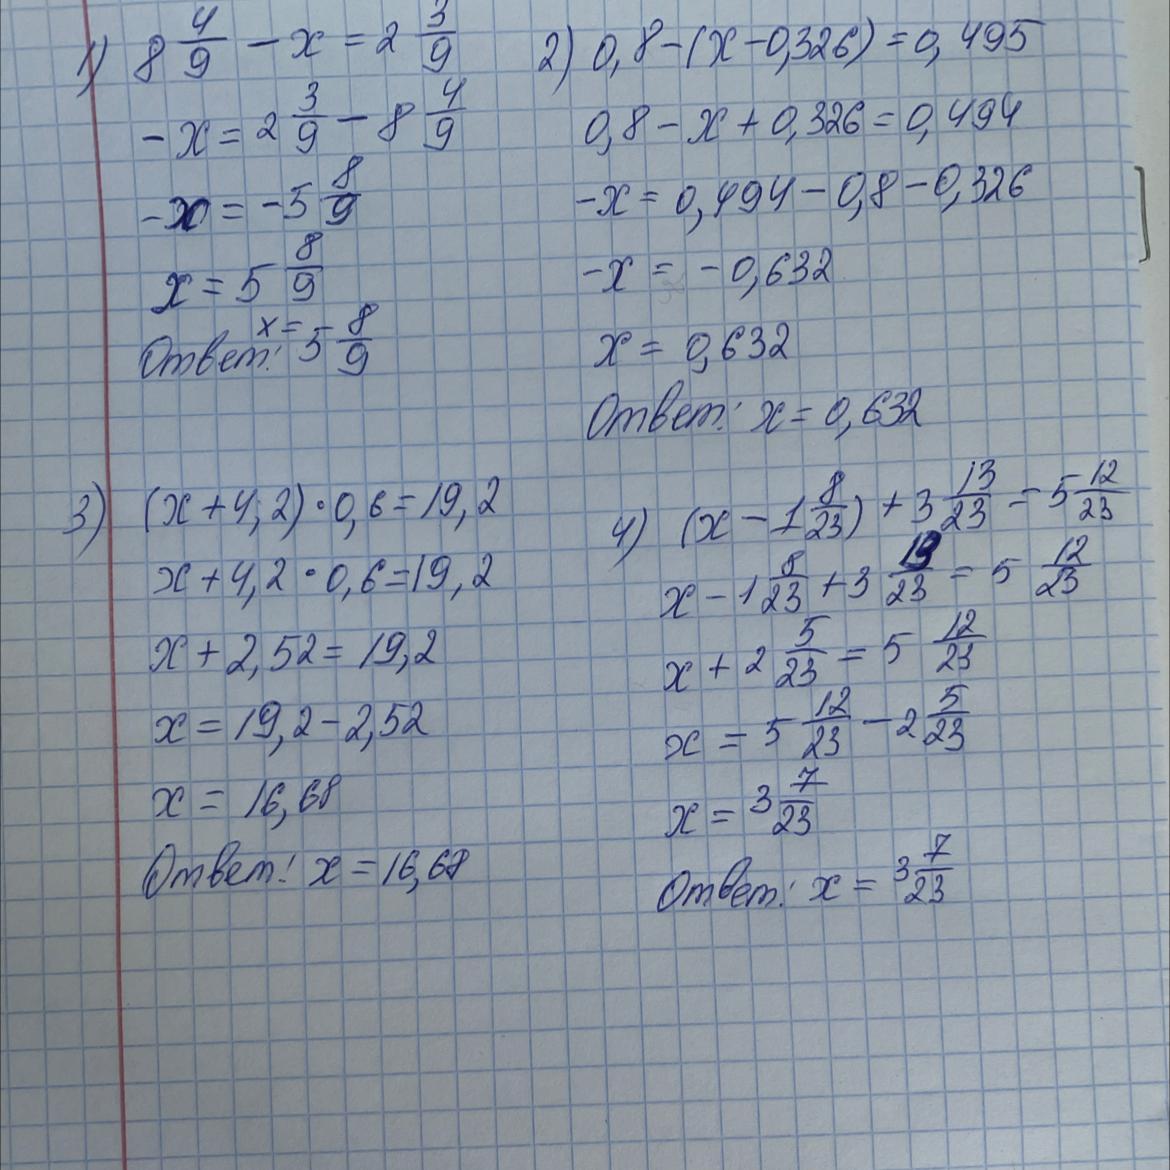 1) 8 4/9 - x = 2 3/9
-x = 2 3/9 - 8 4/9
-x = -5 8/9
x = 5 8/9
Ответ: x = 5 8/9
2) 0,8 - (x - 0,326) = 0,495
0,8 - x + 0,326 = 0,494
-x = 0,494 - 0,8 - 0,326
-x = -0,632
x = 0,632
Ответ: x = 0,632
3) (x + 4,2) · 0,6 = 19,2
x + 4,2 · 0,6 = 19,2
x + 2,52 = 19,2
x = 19,2 - 2,52
x = 16,68
Ответ: x = 16,68
4) (x - 1 8/23) + 3 13/23 = 5 12/23
x - 1 8/23 + 3 13/23 = 5 12/23
x + 2 5/23 = 5 12/23
x = 5 12/23 - 2 5/23
x = 3 7/23
Ответ: x = 3 7/23